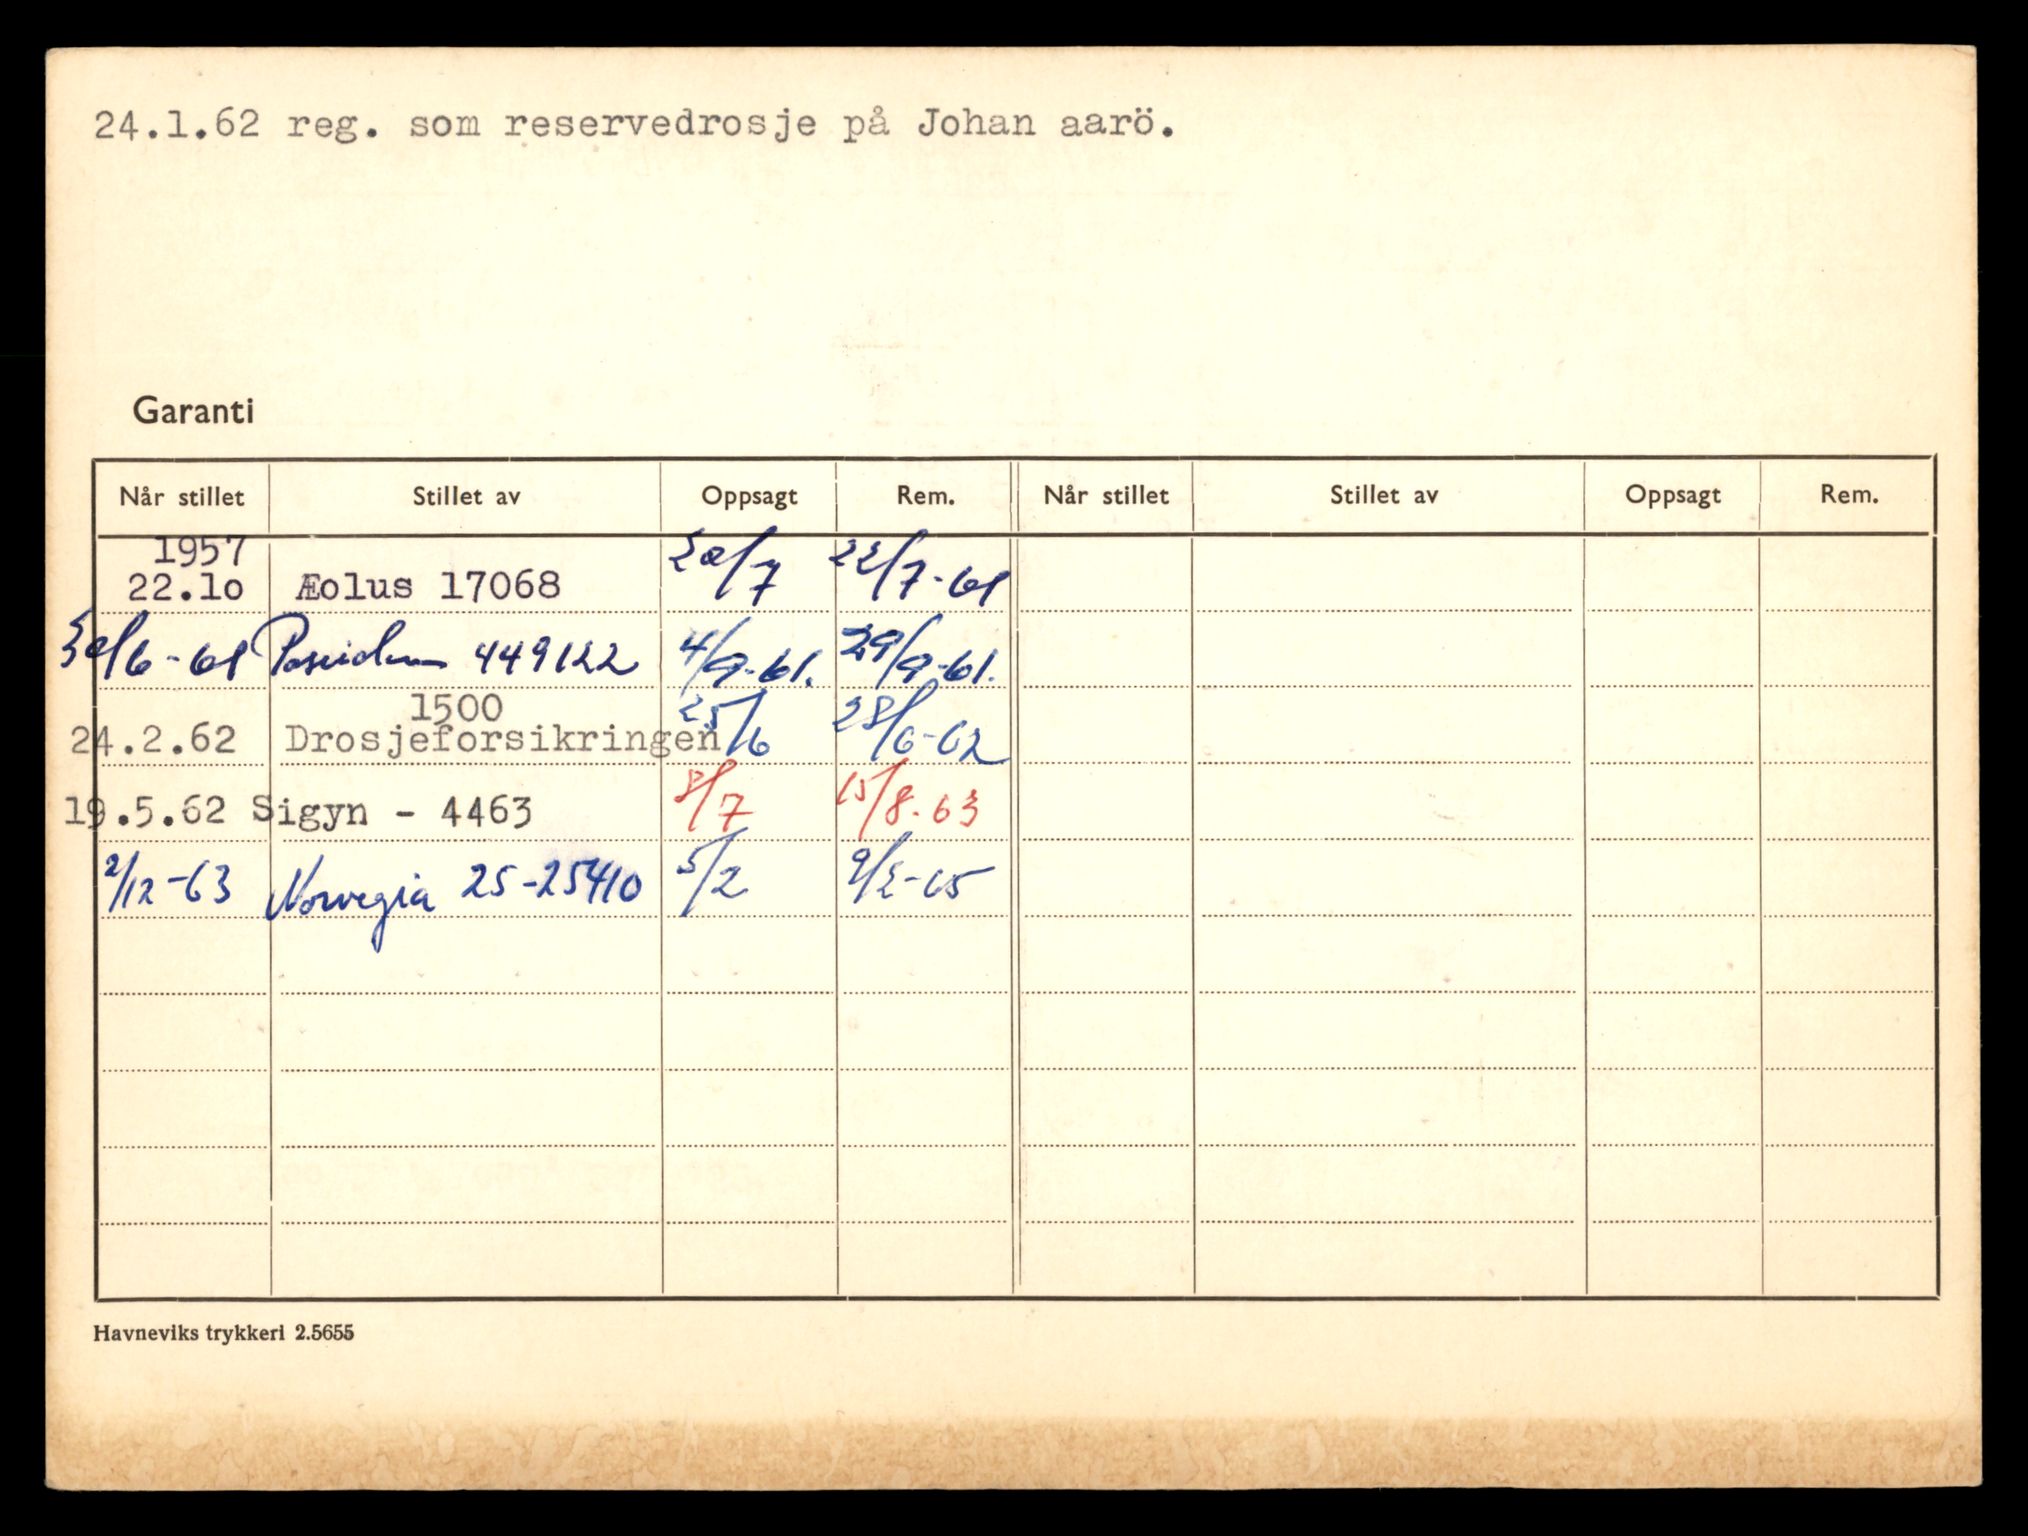 24.1.62 reg. som reservedrosje på Johan aarö.
Garanti
Når stillet Stillet av Oppsagt Rem. Når stillet Stillet av Oppsagt Rem.
1957
22.10 Æolus 17068 20/7 22/7-61
30/6-61 Poseidon 449122 4/9-61. 29/9-61.
1500
24.2.62 Drosjeforsikringen 25/6 28/6-62
19.5.62 Sigyn - 4463 8/7 15/8.63
2/12-63 Norvegia 25-25410 5/2 9/2-65
Havneviks trykkeri 2.5655